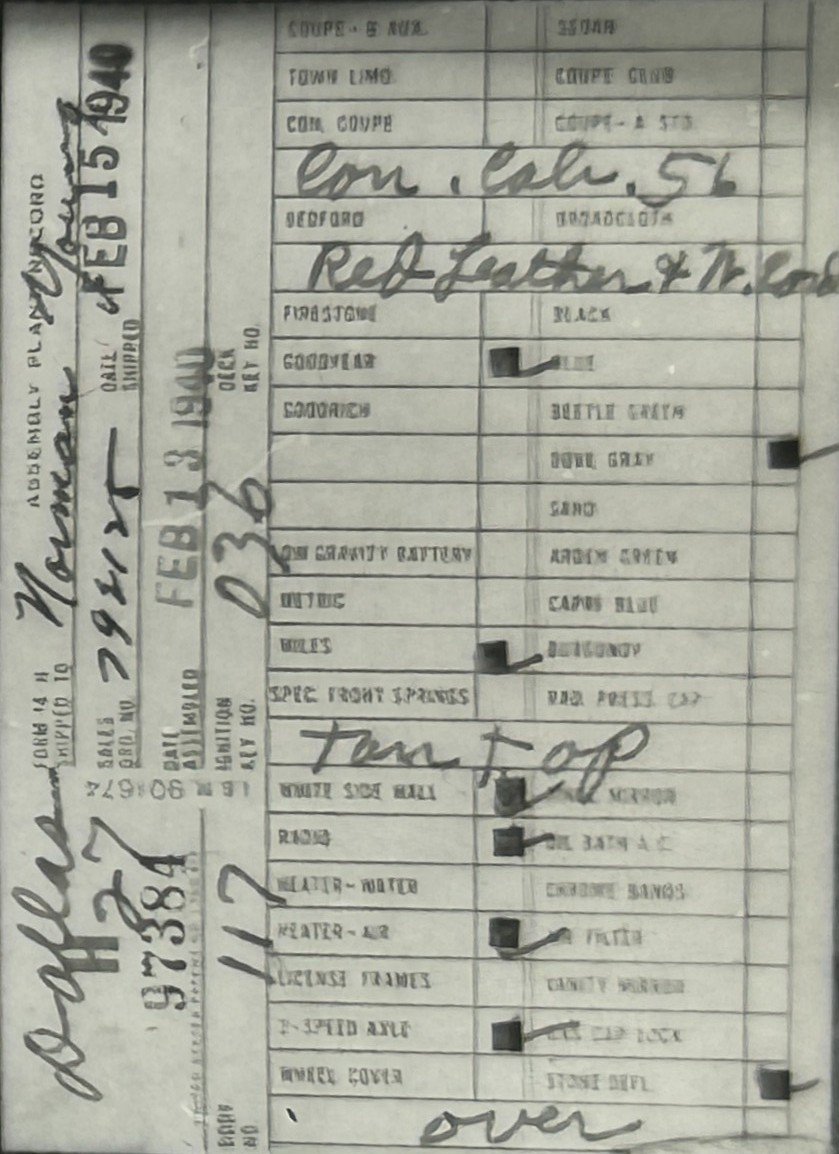 ASSEMBLY PLANT RECORD
FORM 14 H
SHIPPED TO Norman Young
SALES ORD. NO. 794125
DATE SHIPPED FEB 15 1940
DATE ASSEMBLED FEB 13 1940
IGNITION KEY NO. 036
DECK KEY NO.
Dallas
H27
97384
BODY NO 117
COUPE - 5 AUX. SEDAN
TOWN LIMO COUPE CLUB
CON. COUPE COUPE - A STS
Con. Cab. 56
BEDFORD BROADCLOTH
Red Leather & W. Cord
FIRESTONE BLACK
GOODYEAR BLUE
GOODRICH BEETLE GREEN
DOVE GRAY
SAND
LOW GRAVITY BATTERY ARDEN GREEN
METRIC CAPRI BLUE
MILES BURGUNDY
SPEC FRONT SPRINGS
Tan Top
WHITE SIDE WALL MIRROR
RADIO OIL BATH A C
HEATER-WATER CHROME BANDS
HEATER-AIR OIL FILTER
LICENSE FRAMES VANITY MIRROR
2-SPEED AXLE GAS CAP LOCK
WHEEL COVER STONE DEFL
over